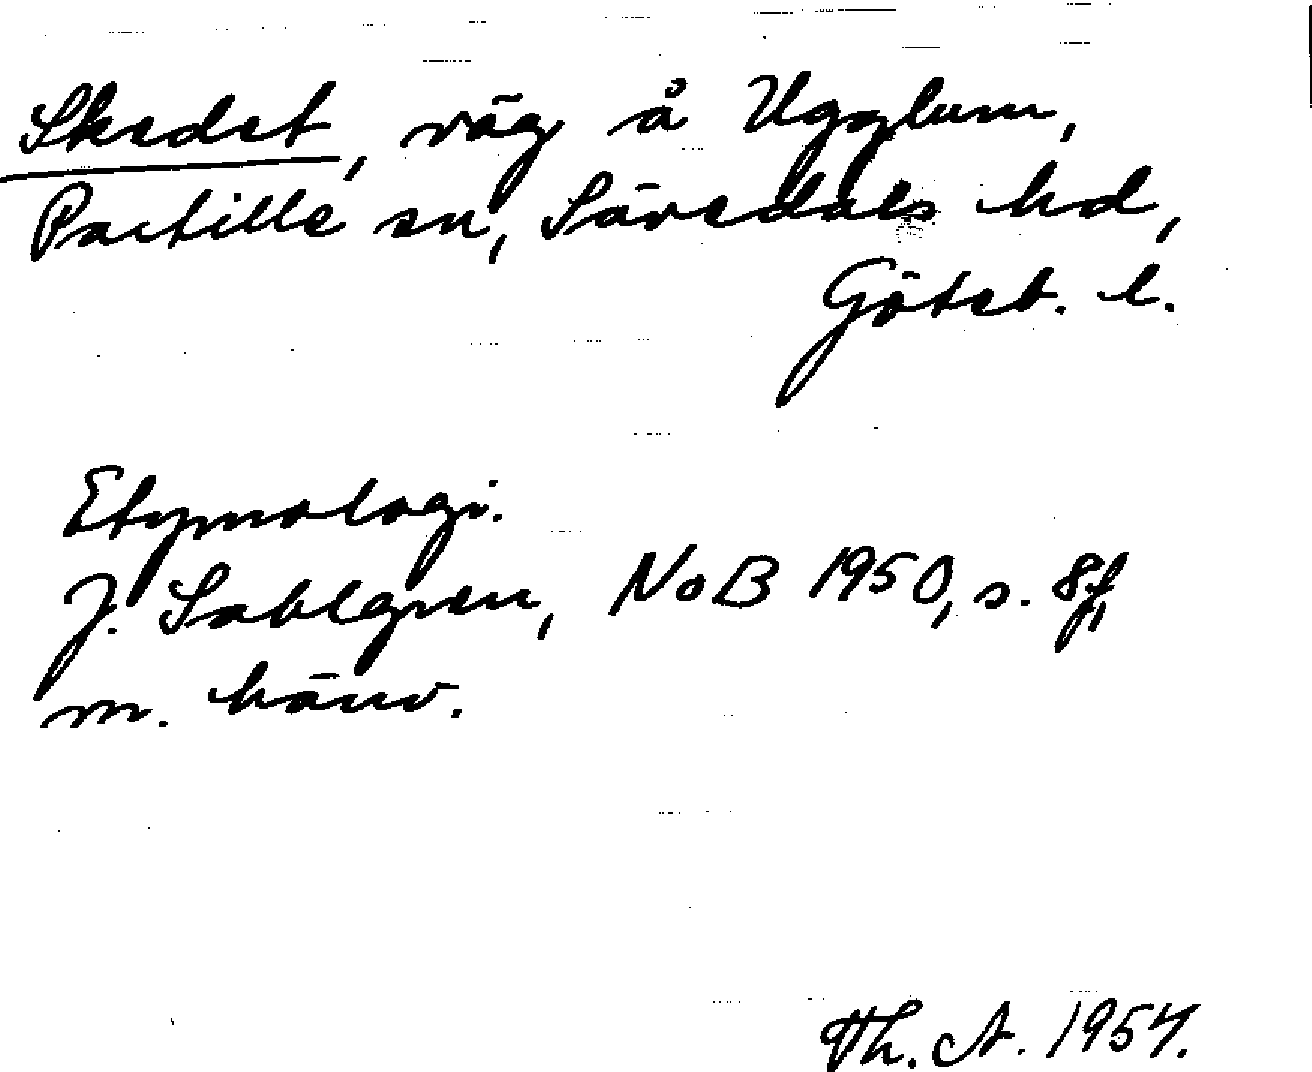 Skedet, väg å Ugglum,
Partille sn, Sävedals hd,
Göteb. l.
Etymologi.
J. Sahlgren, NoB 1950, s. 8f,
m. hänv.
Th. A. 1954.